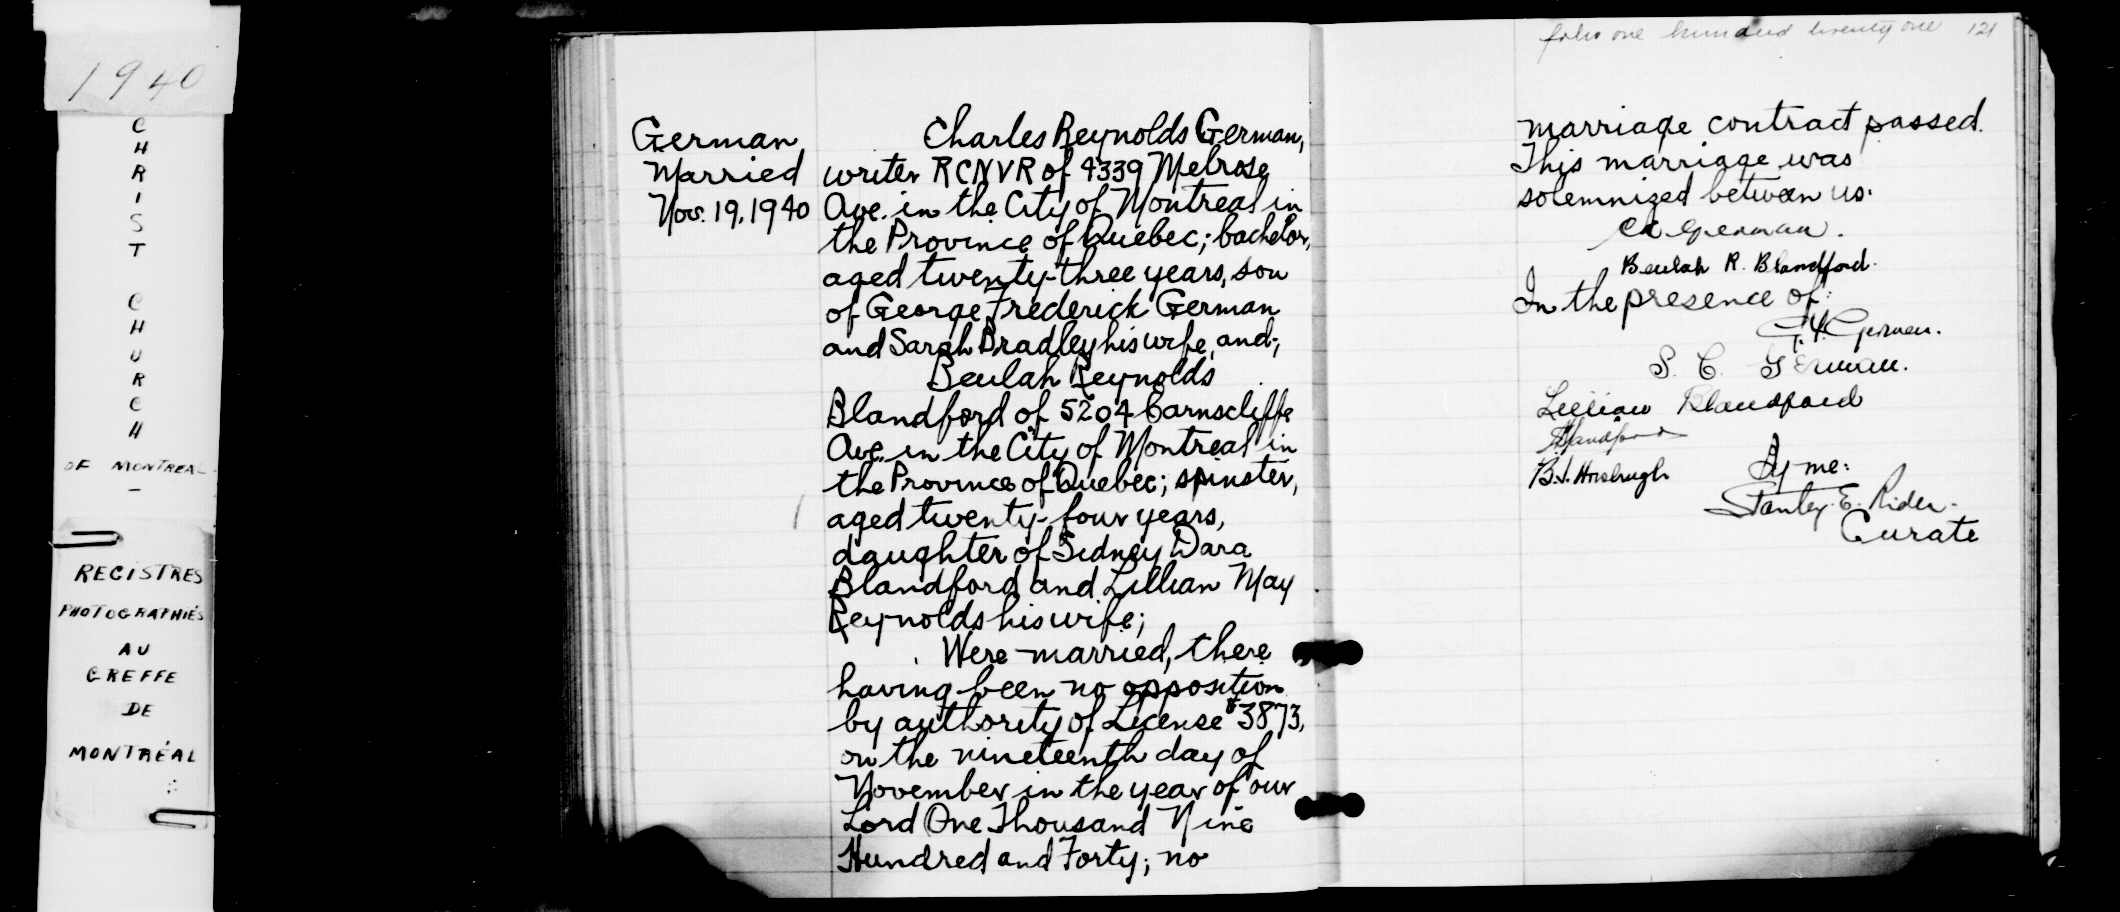 1940
CHRIST
CHURCH
OF MONTREAL
-
REGISTRES
PHOTOGRAPHIÉS
AU
GREFFE
DE
MONTRÉAL
German
Married
Nov. 19, 1940
Charles Reynolds German,
writer RCNVR of 4339 Melrose
Ave. in the City of Montreal in
the Province of Quebec; bachelor,
aged twenty-three years, son
of George Frederick German
and Sarah Bradley his wife, and;
Beulah Reynolds
Blandford of 5204 Earnscliffe
Ave. in the City of Montreal in
the Province of Quebec; spinster,
aged twenty-four years,
daughter of Sidney Dara
Blandford and Lillian May
Reynolds his wife;
Were married, there
having been no opposition
by authority of License #3873,
on the nineteenth day of
November in the year of our
Lord One Thousand Nine
Hundred and Forty; no
folio one hundred twenty one 121
marriage contract passed.
This marriage was
solemnized between us:
German.
Beulah R. Blandford.
In the presence of:
German.
S. C. German.
Lillian Blandford
Blandford
By me:
Stanley E. Rider.
Curate